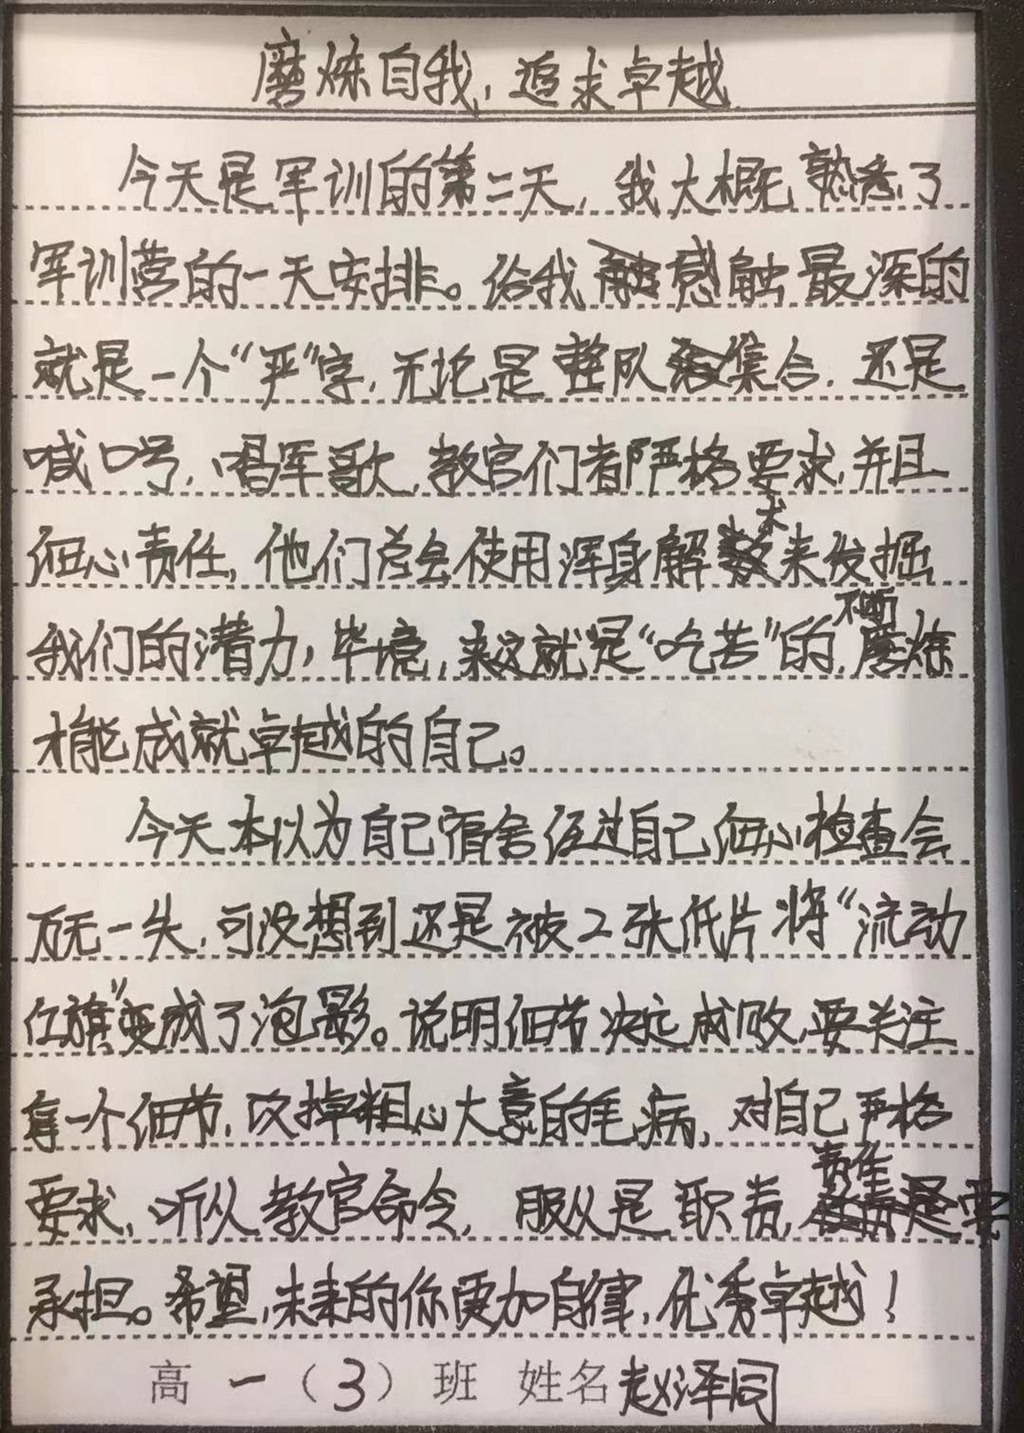 磨炼自我，追求卓越
今天是军训的第二天，我大概熟悉了
军训营的一天安排。给我感触最深的
就是一个“严”字，无论是整队集合，还是
喊口号，唱军歌，教官们都严格要求，并且
细心责任，他们总会使用浑身解术来发掘
我们的潜力，毕竟，来这就是“吃苦”的，不断磨炼
才能成就卓越的自己。
今天本以为自己宿舍经过自己细心检查会
万无一失，可没想到还是被2张低片将“流动
红旗”变成了泡影。说明细节决定成败，要关注
每一个细节，改掉粗心大意的毛病，对自己严格
要求，听从教官命令，服从是职责，责任是要
承担。希望，未来的你更加自律，优秀卓越！
高一（3）班 姓名赵泽同